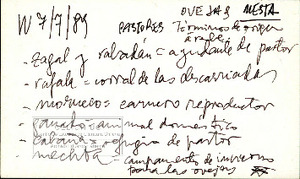 W 7/7/89
OVEJAS MESTA
PASTORES Términos de origen árabe
- zagal y rabadán = ayudante de pastor
- rafala = corral de las descarriadas
- morueco = carnero reproductor
- ganado = animal doméstico
- cabaña = refugio de pastor
mechta campamento de invierno
para las ovejas